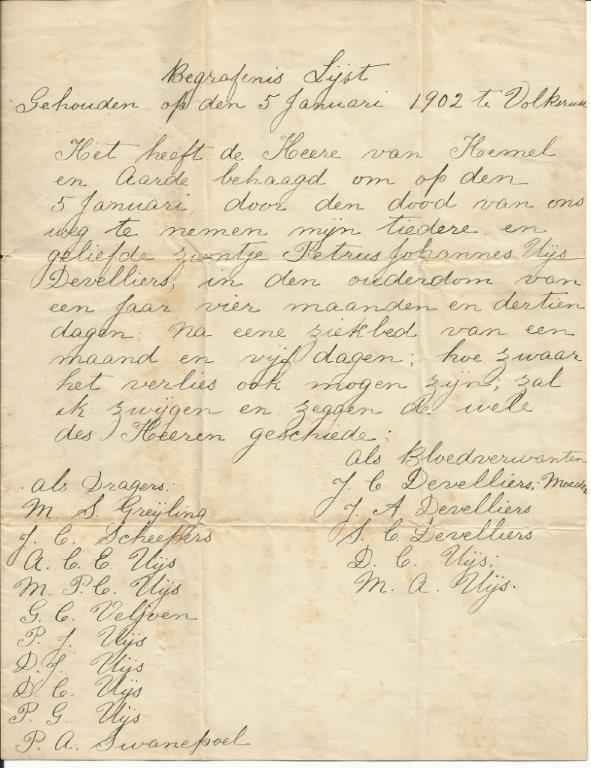 Begrafenis Lijst
Gehouden op den 5 Januari 1902 te Volksrust
Het heeft de Heere van Hemel
en Aarde behaagd om op den
5 Januari door den dood van ons
weg te nemen mijn tiedere en
geliefde zoontje Petrus Johannes Uijs
Develliers, in den ouderdom van
een Jaar vier maanden en dertien
dagen; na eene ziekbed van een
maand en vijf dagen; hoe zwaar
het verlies ook mogen zijn; zal
ik zwijgen en zeggen de wele
des Heeren geschiede;
als Bloedverwanten
J C Develliers; Moeder
J A Develliers
S. C Develliers
D. C. Uijs;
M. A. Uijs.
als Dragers:
M S Greijling
J. C. Scheepers
A. C. E. Uijs
M. P. C. Uijs
G. C. Veljoen
P. J. Uijs
D. J. Uijs
D. C. Uijs
P. G Uijs
P. A. Swanepoel